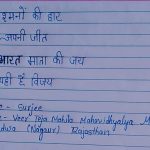 श्मनों की हार
-अपनी जीत
भारत माता की जय
यही है विजय
- Surjee
- Veer Teja Mahila Mahavidhyalya M
(Nagaur) Rajasthan